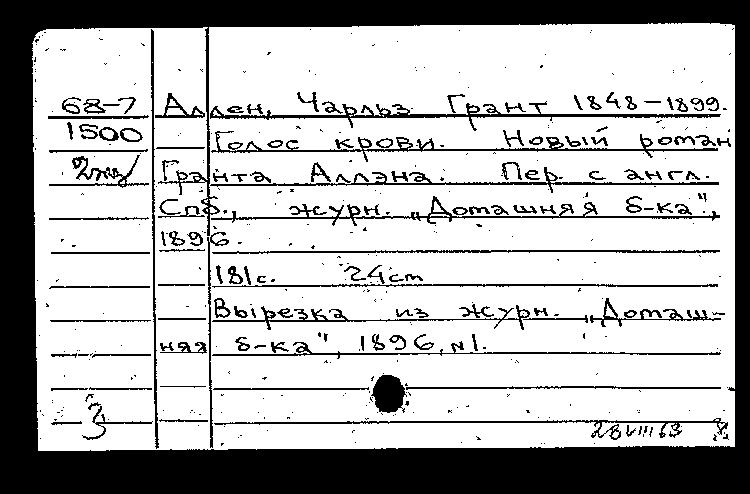 68-7 Аллен, Чарльз Грант 1848-1899.
1500 Голос крови. Новый роман
2 экз Гранта Аллэна. Пер. с англ.
Спб., журн. „Домашняя б-ка",
1896.
181с. 24cm
Вырезка из журн. „Домаш-
няя б-ка", 1896, №1.
3
28 VIII 63